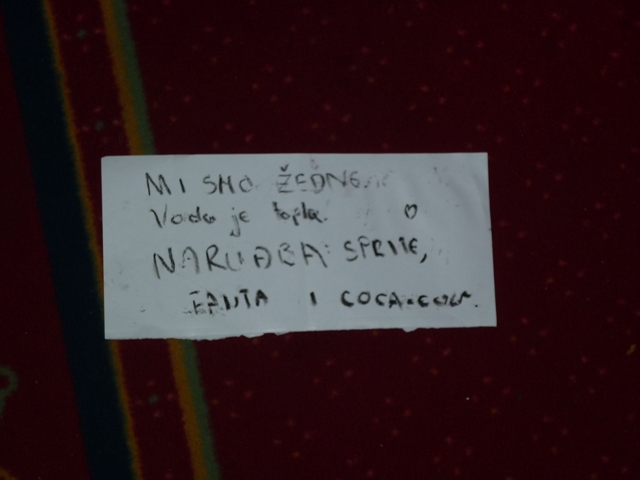 MI SMO ŽEDNE
Voda je topla. ♡
NARUDBA: SPRITE,
FANTA I COCA-COLA.